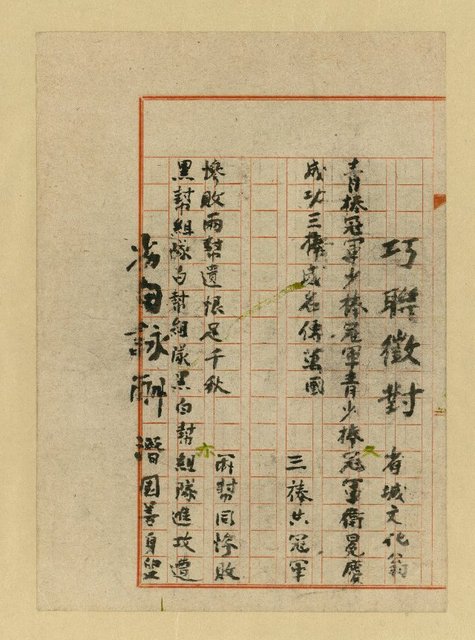 巧聯徵對 省城文化翁
青棒冠軍少棒冠軍青少棒冠軍衛冕慶
成功三棒威名傳萬國 三棒共冠軍
慘敗兩幫遺恨足千秋 兩幫同慘敗
黑幫組隊白幫組隊黑白幫組隊進攻遭
詠酬 潛園善身叟